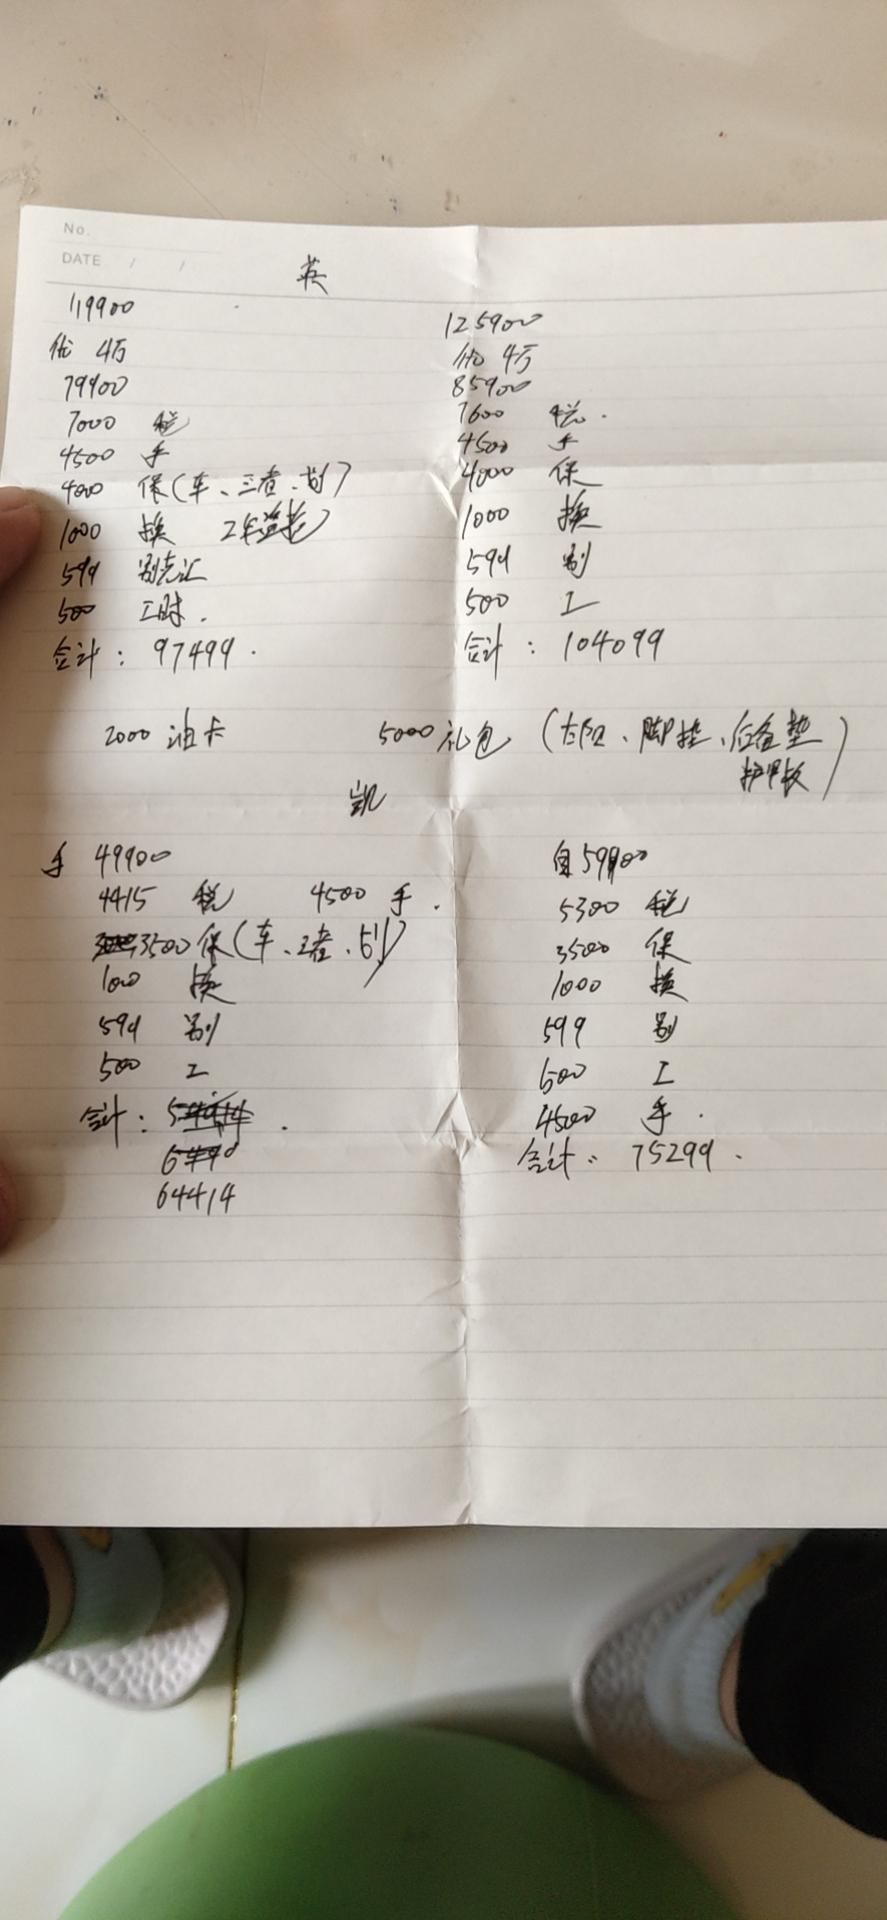 No.
DATE / /
英
119900
优 4万
79900
7000 税
4500 手
4000 保(车、三者、划)
1000 换 2年盗抢
599 别克汇
500 工时.
合计: 97499.
125900
优 4万
85900
7600 税.
4500 手
4000 保
1000 换
599 别
500 工
合计: 104099
2000 油卡
5000 礼包 (太阳、脚垫、后备垫
护甲板)
凯
手 49900
4415 税 4500 手.
3500 保(车、三者、划)
1000 换
599 别
500 工
合计:
64414
自59900
5300 税
3500 保
1000 换
599 别
500 工
4500 手.
合计: 75299.